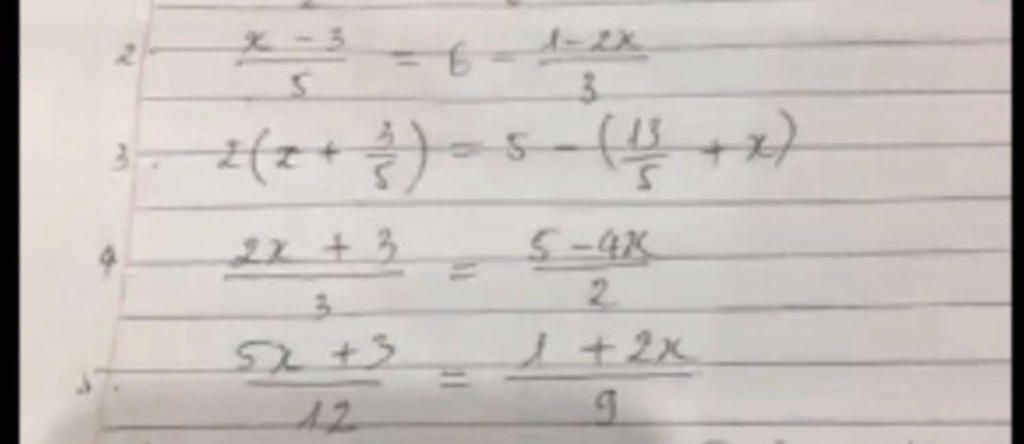 2 (x - 3)/5 = 6 - (1 - 2x)/3
3. 2(x + 3/5) = 5 - (13/5 + x)
4 (2x + 3)/3 = (5 - 4x)/2
5. (5x + 3)/12 = (1 + 2x)/9